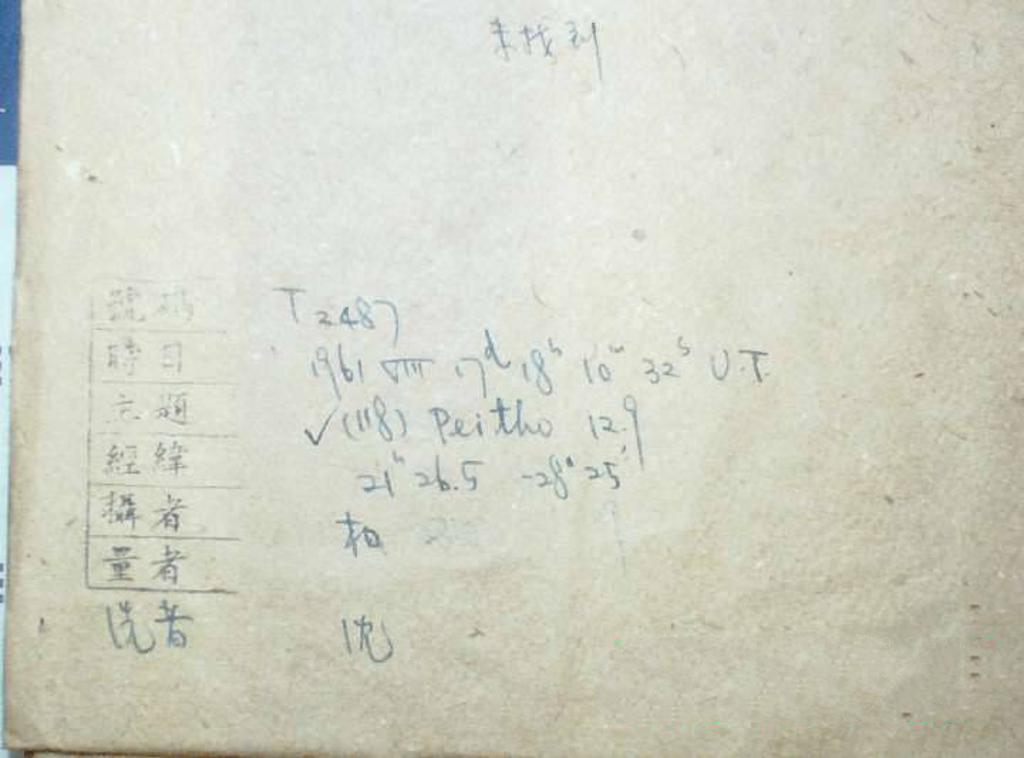 未找到
號碼 T 2487
時日 1961 VIII 17d 18h 10m 32s U.T.
主題 ✓(118) Peitho 12.9
經緯 21h 26.5 -28° 25'
攝者 柏
量者
洗者 沈